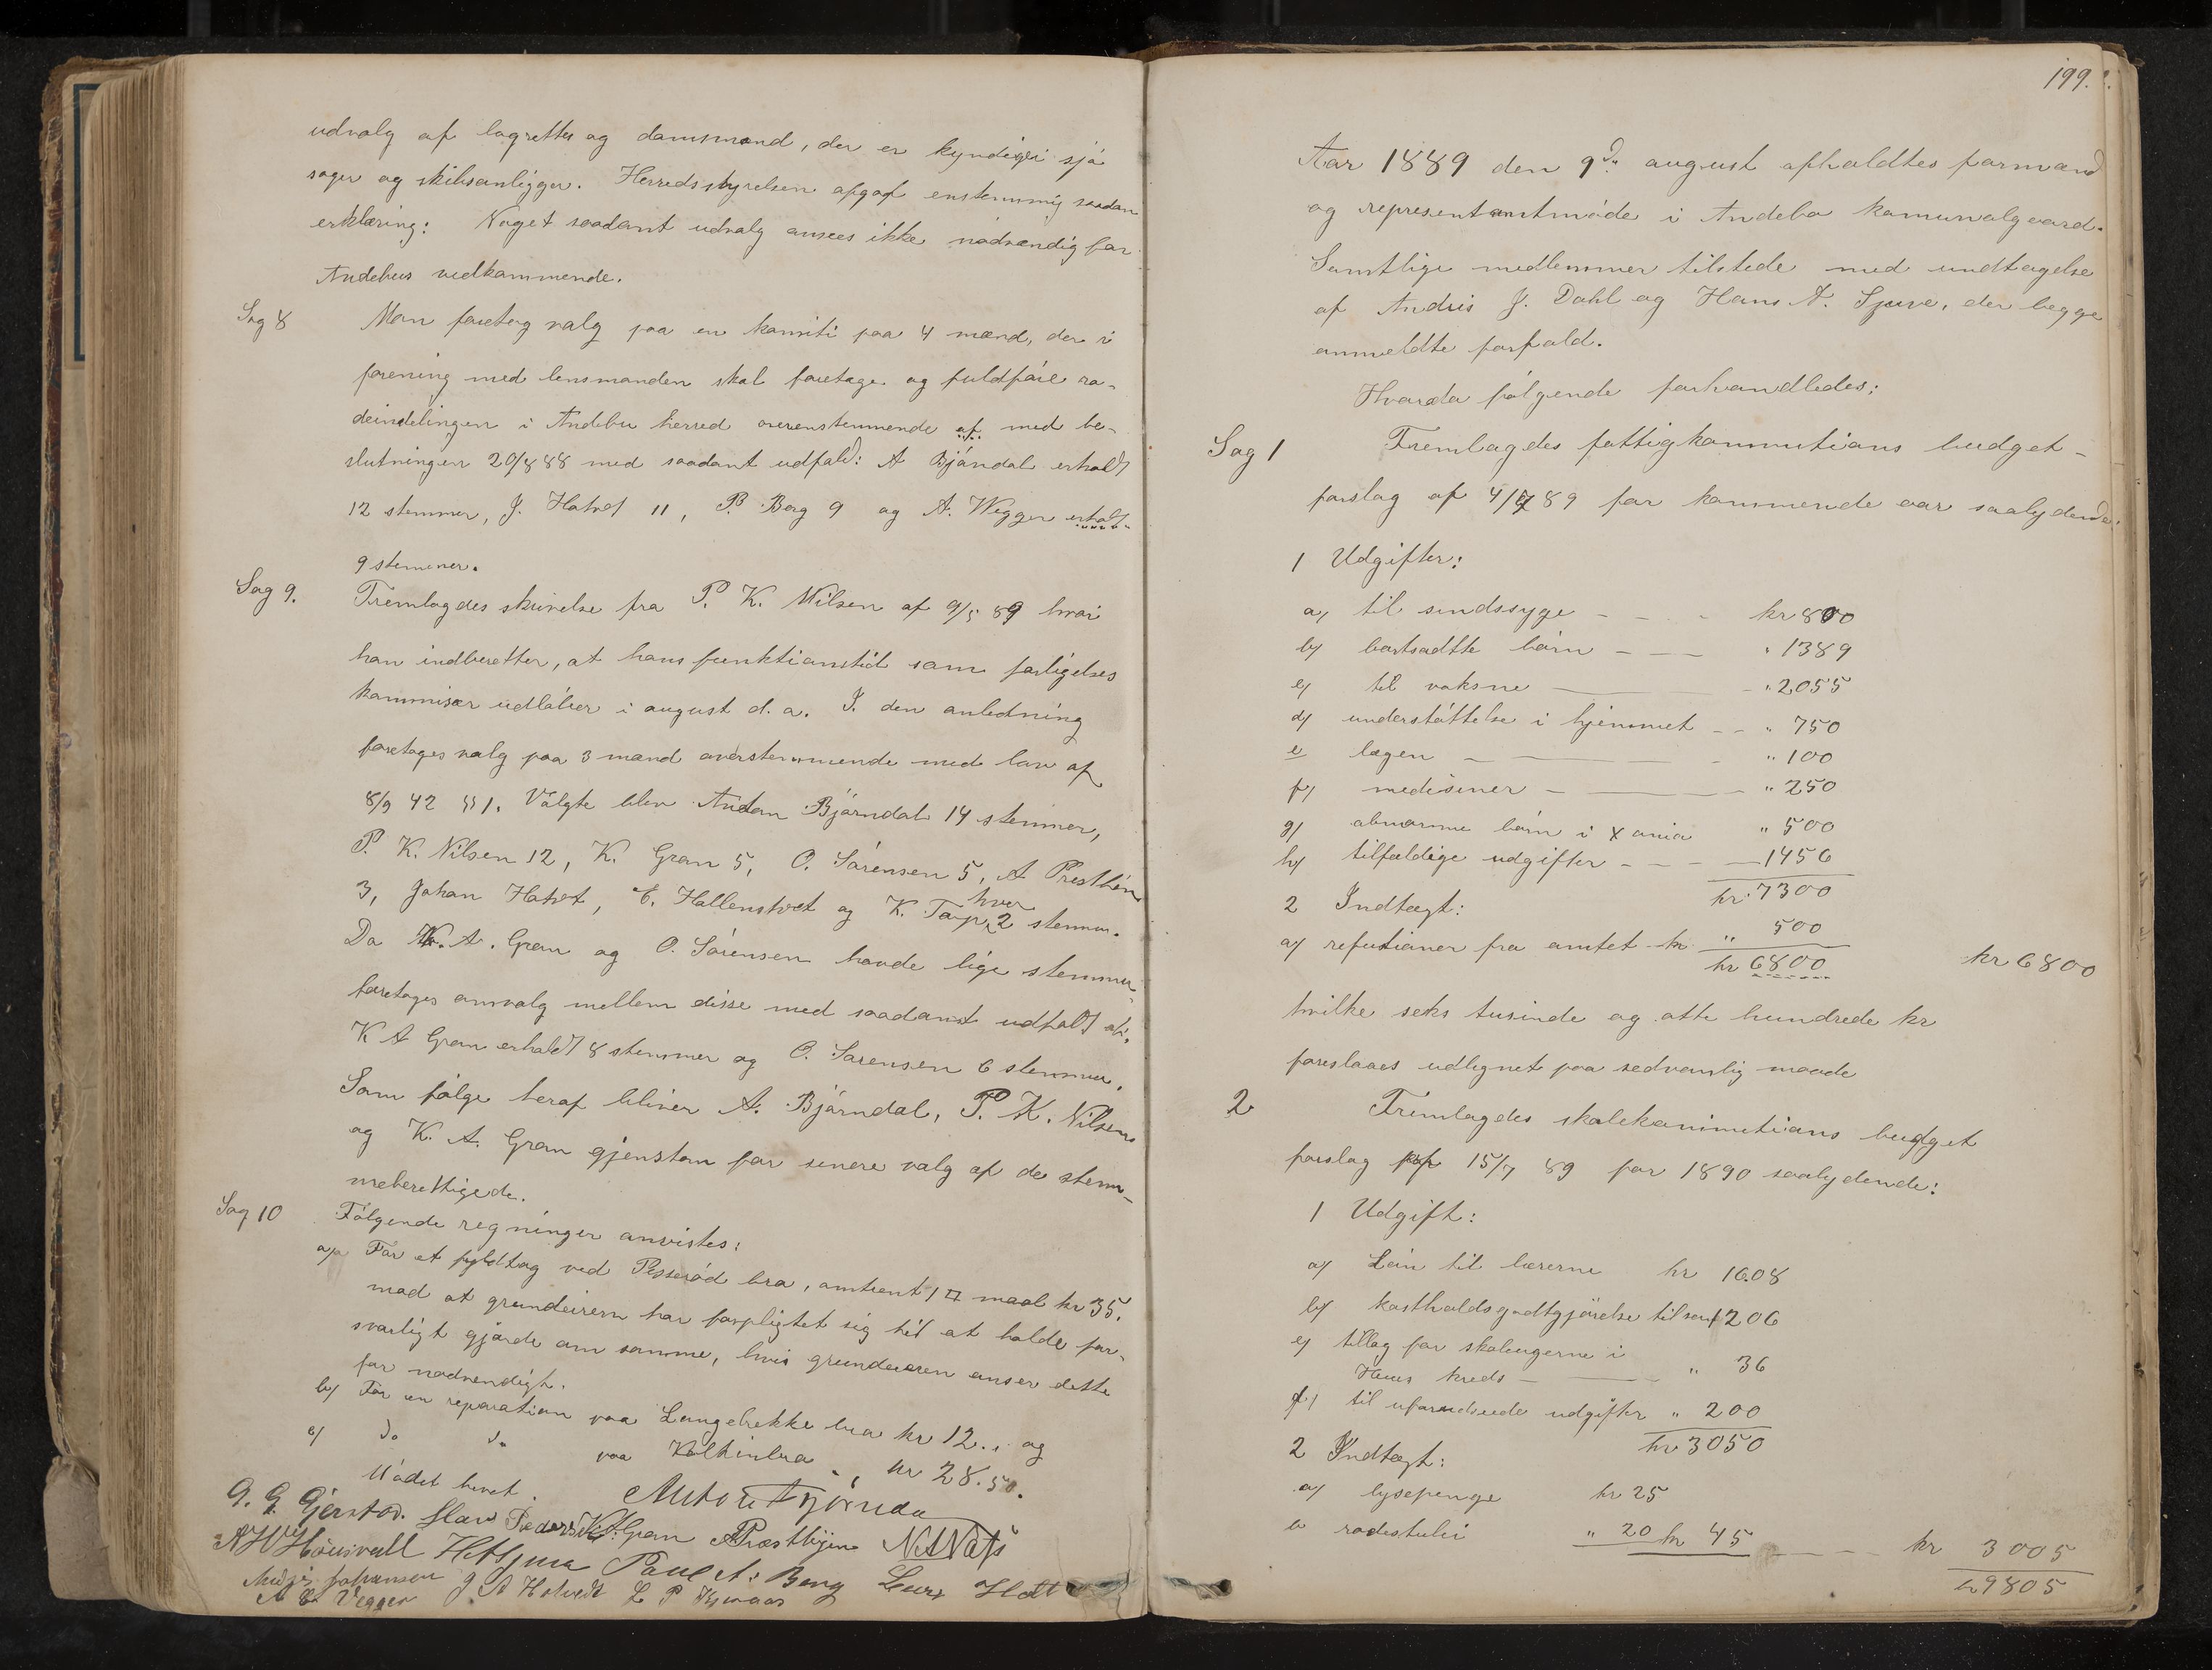 udvalg af lagrettes og damsmænd, der er kyndige i sjø
sager og skibsanligger. Herredsstyrelsen afgaf enstemmig saadan
erklæring: Noget saadant udvalg ansees ikke nødvendig for
Andebus vedkammende.
Sag 8 Man foretog valg paa en kamiti paa 4 mænd, der i
forening med lensmanden skal foretage og fuldføre ro-
deindelingen i Andebu herred overenstemmende af med be-
slutningen 20/8 88 med saadant udfald: A Bjørndal erholdt
12 stemmer, J. Hotvet 11, P. Berg 9 og A. Wegger erholdt
9 stemmer.
Sag 9. Fremlagdes skrivelse fra P. K. Nilsen af 9/5 89 hvori
han indberetter, at hans funktionstid som forligelses
kommisær udløber i august d. a. I den anledning
foretoges valg paa 3 mænd overstemmende med lov af
8/9 42 §§ 1. Valgte blev Andan Bjørndal 14 stemmer,
P. K. Nilsen 12, K. Gran 5, O. Sørensen 5, A Presthien
3, Johan Hotvet, E. Hallenstvet og K. Tarp hver 2 stemmer.
Da K. A. Gran og O. Sørensen havde lige stemmer
foretoges omvalg mellem disse med saadant udfald at:
K A Gran erholdt 8 stemmer og O. Sørensen 6 stemmer.
Som følge heraf bliver A. Bjørndal, P. K. Nilsen
og K. A. Gran gjenstan for senere valg af de stem-
meberettigede.
Sag 10 Følgende regninger anvistes:
a) For et fyldtag ved Pisserød bro, omtrent 1 □ maal kr 35.
mod at grundeieren har forpligtet sig til at holde for-
svarligt gjærde om samme, hvis grundeieren anser dette
for nødvendigt.
b) For en reparation paa Langebrekke bro kr 12.. og
c) Do Do paa Kolkinbro " kr 28.50.
Mødet hevet.
Anton Bjørndal
G. G. Gjerstad. Mar Peders K.A. Gran APræsthijen
A H Hørsvall H A Sjuve Paul A. Berg Lars Hott
Andris Johansen J A Hotvedt L P
A E Vegger
199.
Aar 1889 den 9de august afholdtes formænd
og representantmøde i Andebu kamunalgaard.
Samtlige medlemmer tilstede med undtagelse
af Andris J. Dahl og Hans A. Sjuve, der begge
anmeldte forfald.
Hvorda følgende forhandledes:
Sag 1 Fremlagdes fattigkammitions budget-
forslag af 4/7 89 for kammende aar saalydende:
1 Udgifter:
a) til sindssyge - - - kr 800
b) bortsadtte børn - - - " 1389
c) til voksne - " 2055
d) understøttelse i hjemmet - - " 750
e lægen - - " 100
f) medisiner - - " 250
g) abnorme børn i Xania " 500
h) tilfældige udgifter - - - 1456
kr. 7300
2 Indtægt:
a) refutioner fra amtet kr " 500
kr 6800 kr 6800
hvilke seks tusinde og otte hundrede kr
foreslaaes udlignet paa sedvanlig maade
2 Fremlagdes skolekammitians budget
forslag af 15/7 89 for 1890 saalydende:
1 Udgift:
a) Løn til lærerne kr 1608
b) kostholdsgodtgjørelse tilsam 1206
c) tillag for skolengerne i
Høias kreds - " 36
d) til uforudseede udgifter " 200
kr 3050
2 Indtægt:
a) lysepenge kr 25
b rodestulir " 20 kr 45 - - - kr 3005
kr 9805